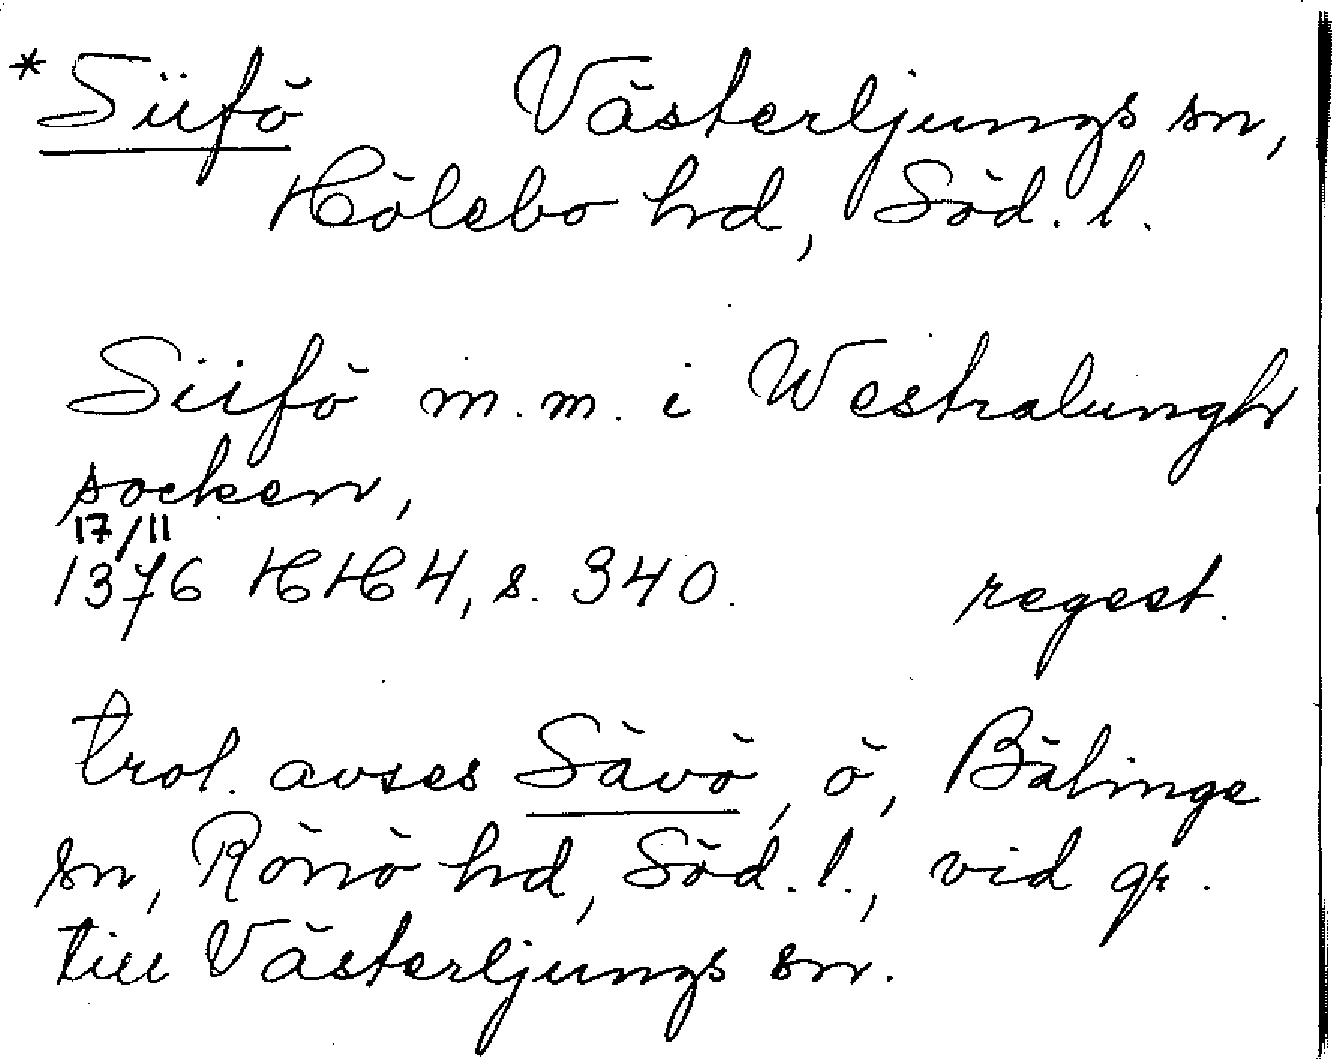 * Siifö Västerljungs sn,
Hölebo hd, Söd. l.
Siifö m.m. i Westralungh
socken,
17/11
1376 HH 4, s. 340. regest.
trol. avses Sävö, ö, Bälinge
sn, Rönö hd, Söd. l., vid gr.
till Västerljungs sn.